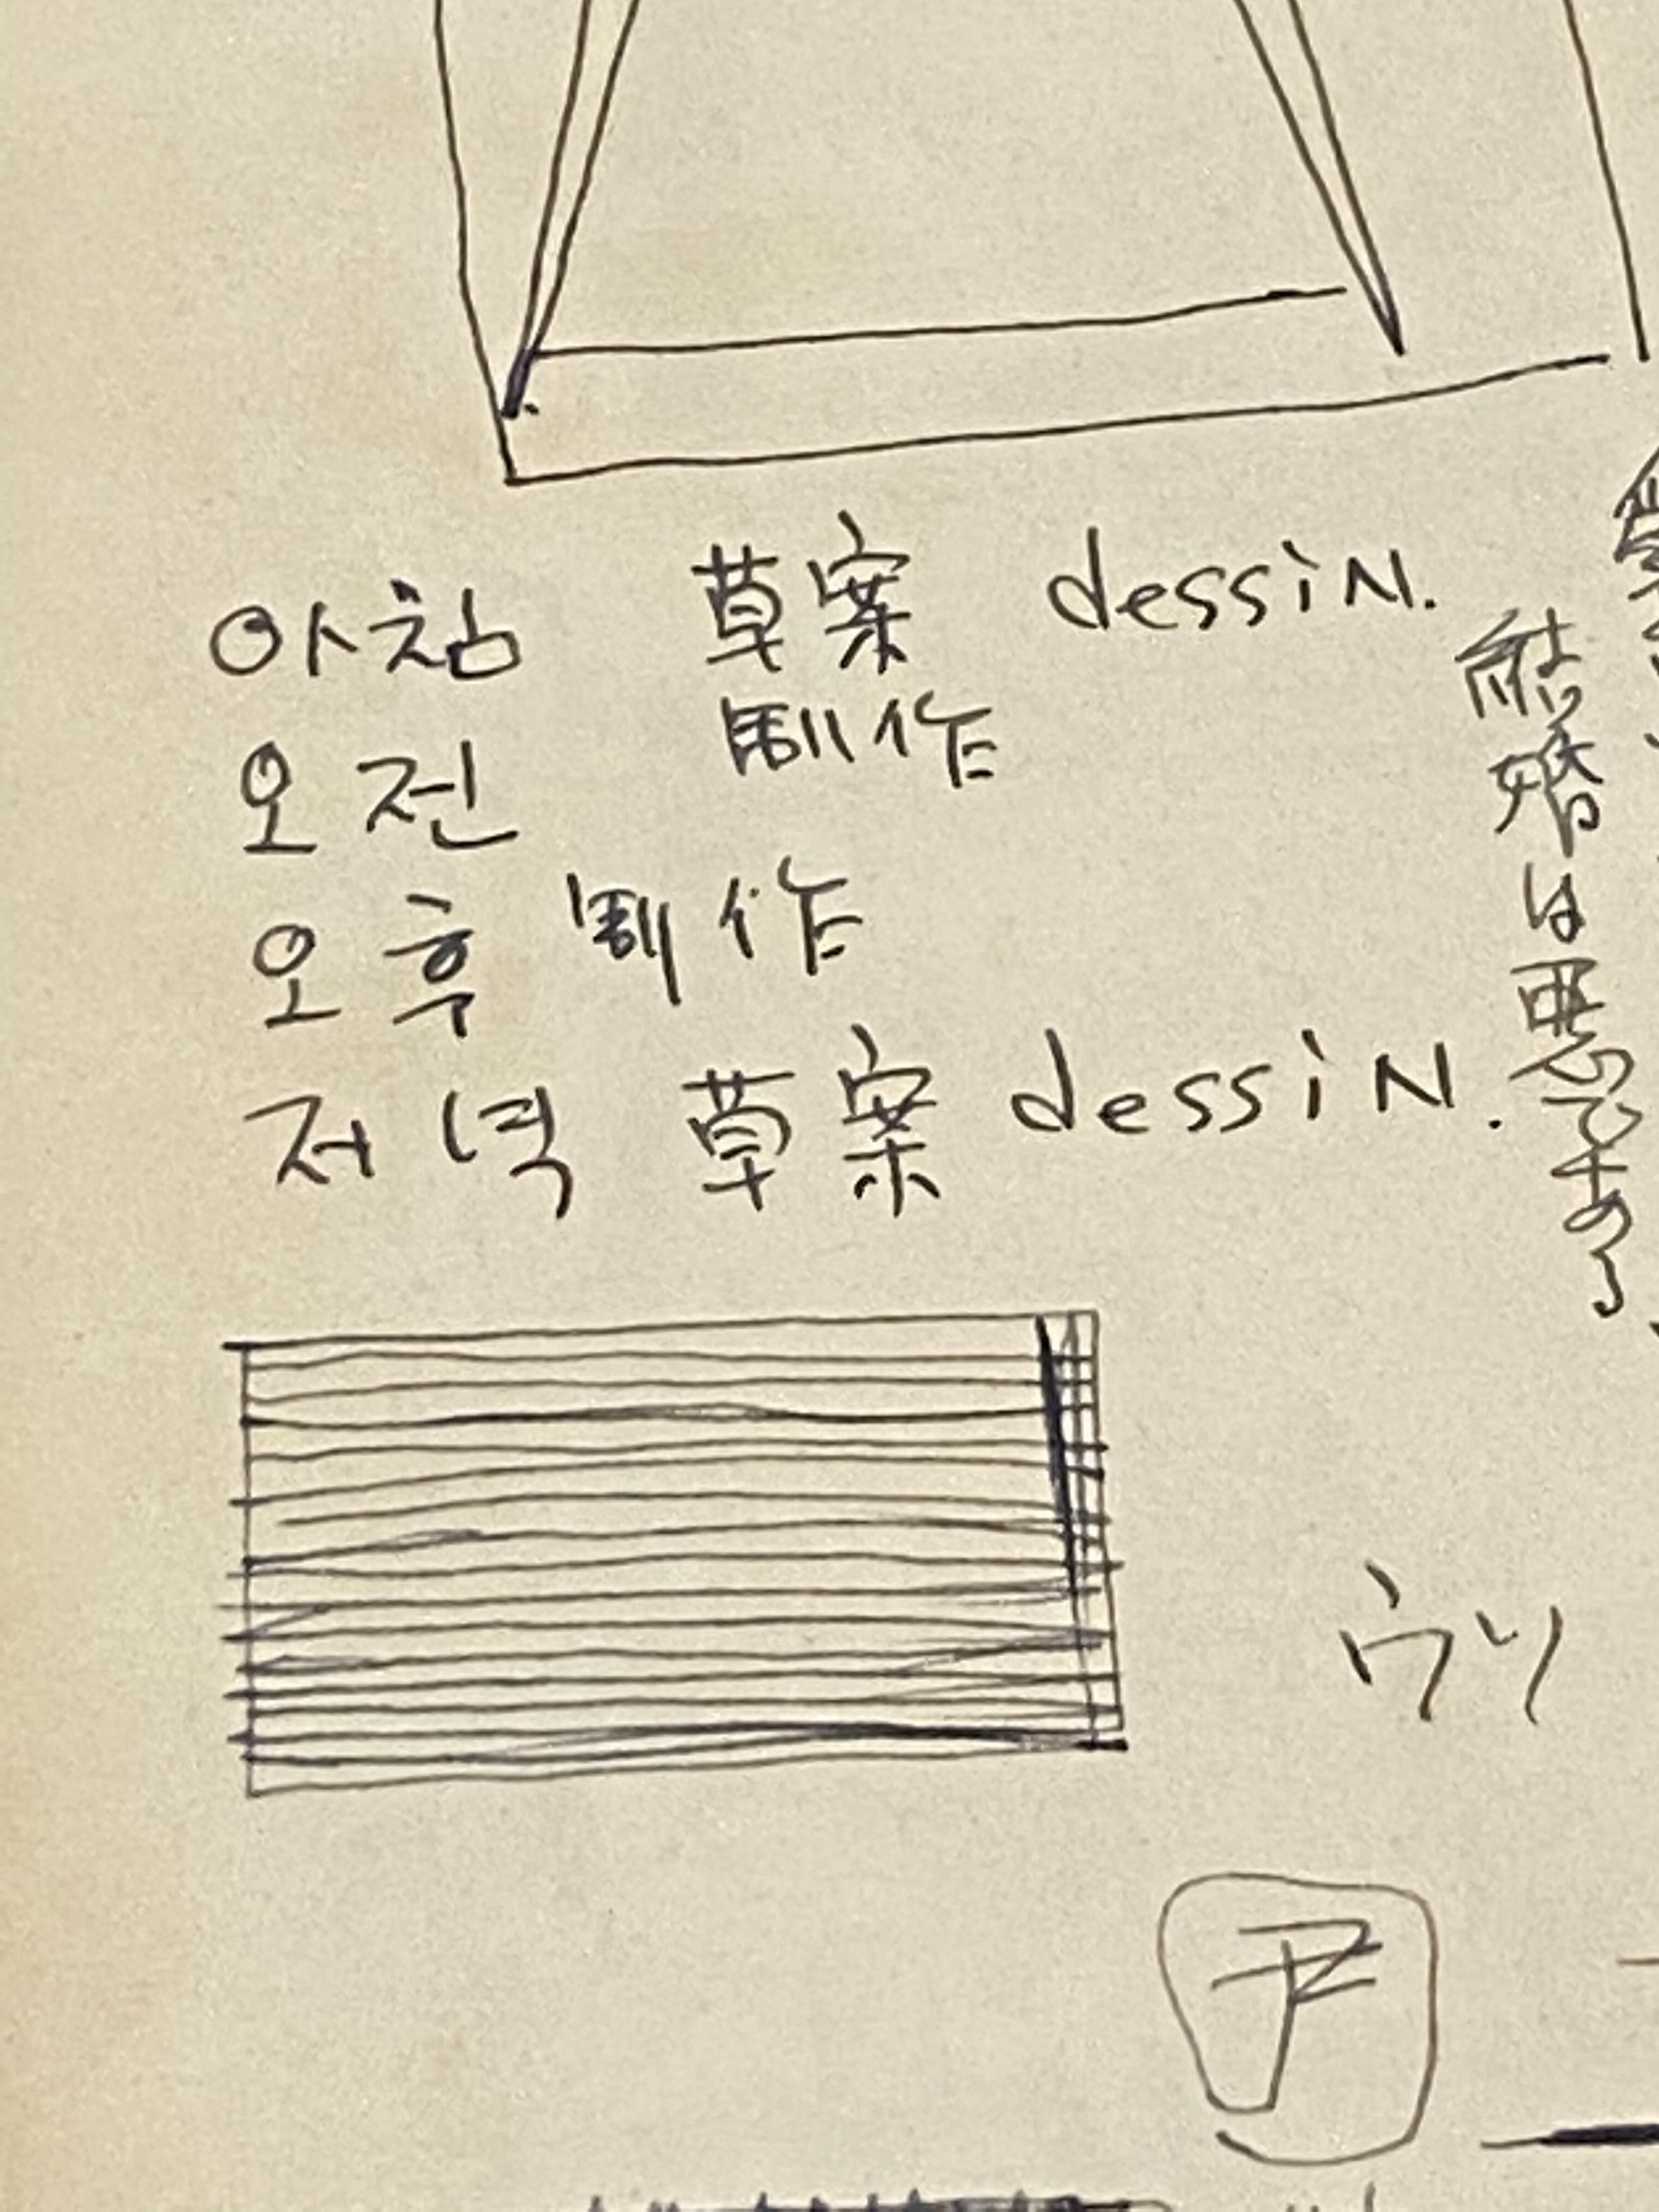 아침 草案 dessin.
오전 制作
오후 制作
저녁 草案 dessin.
結婚は悪でなの
ウリ
尹